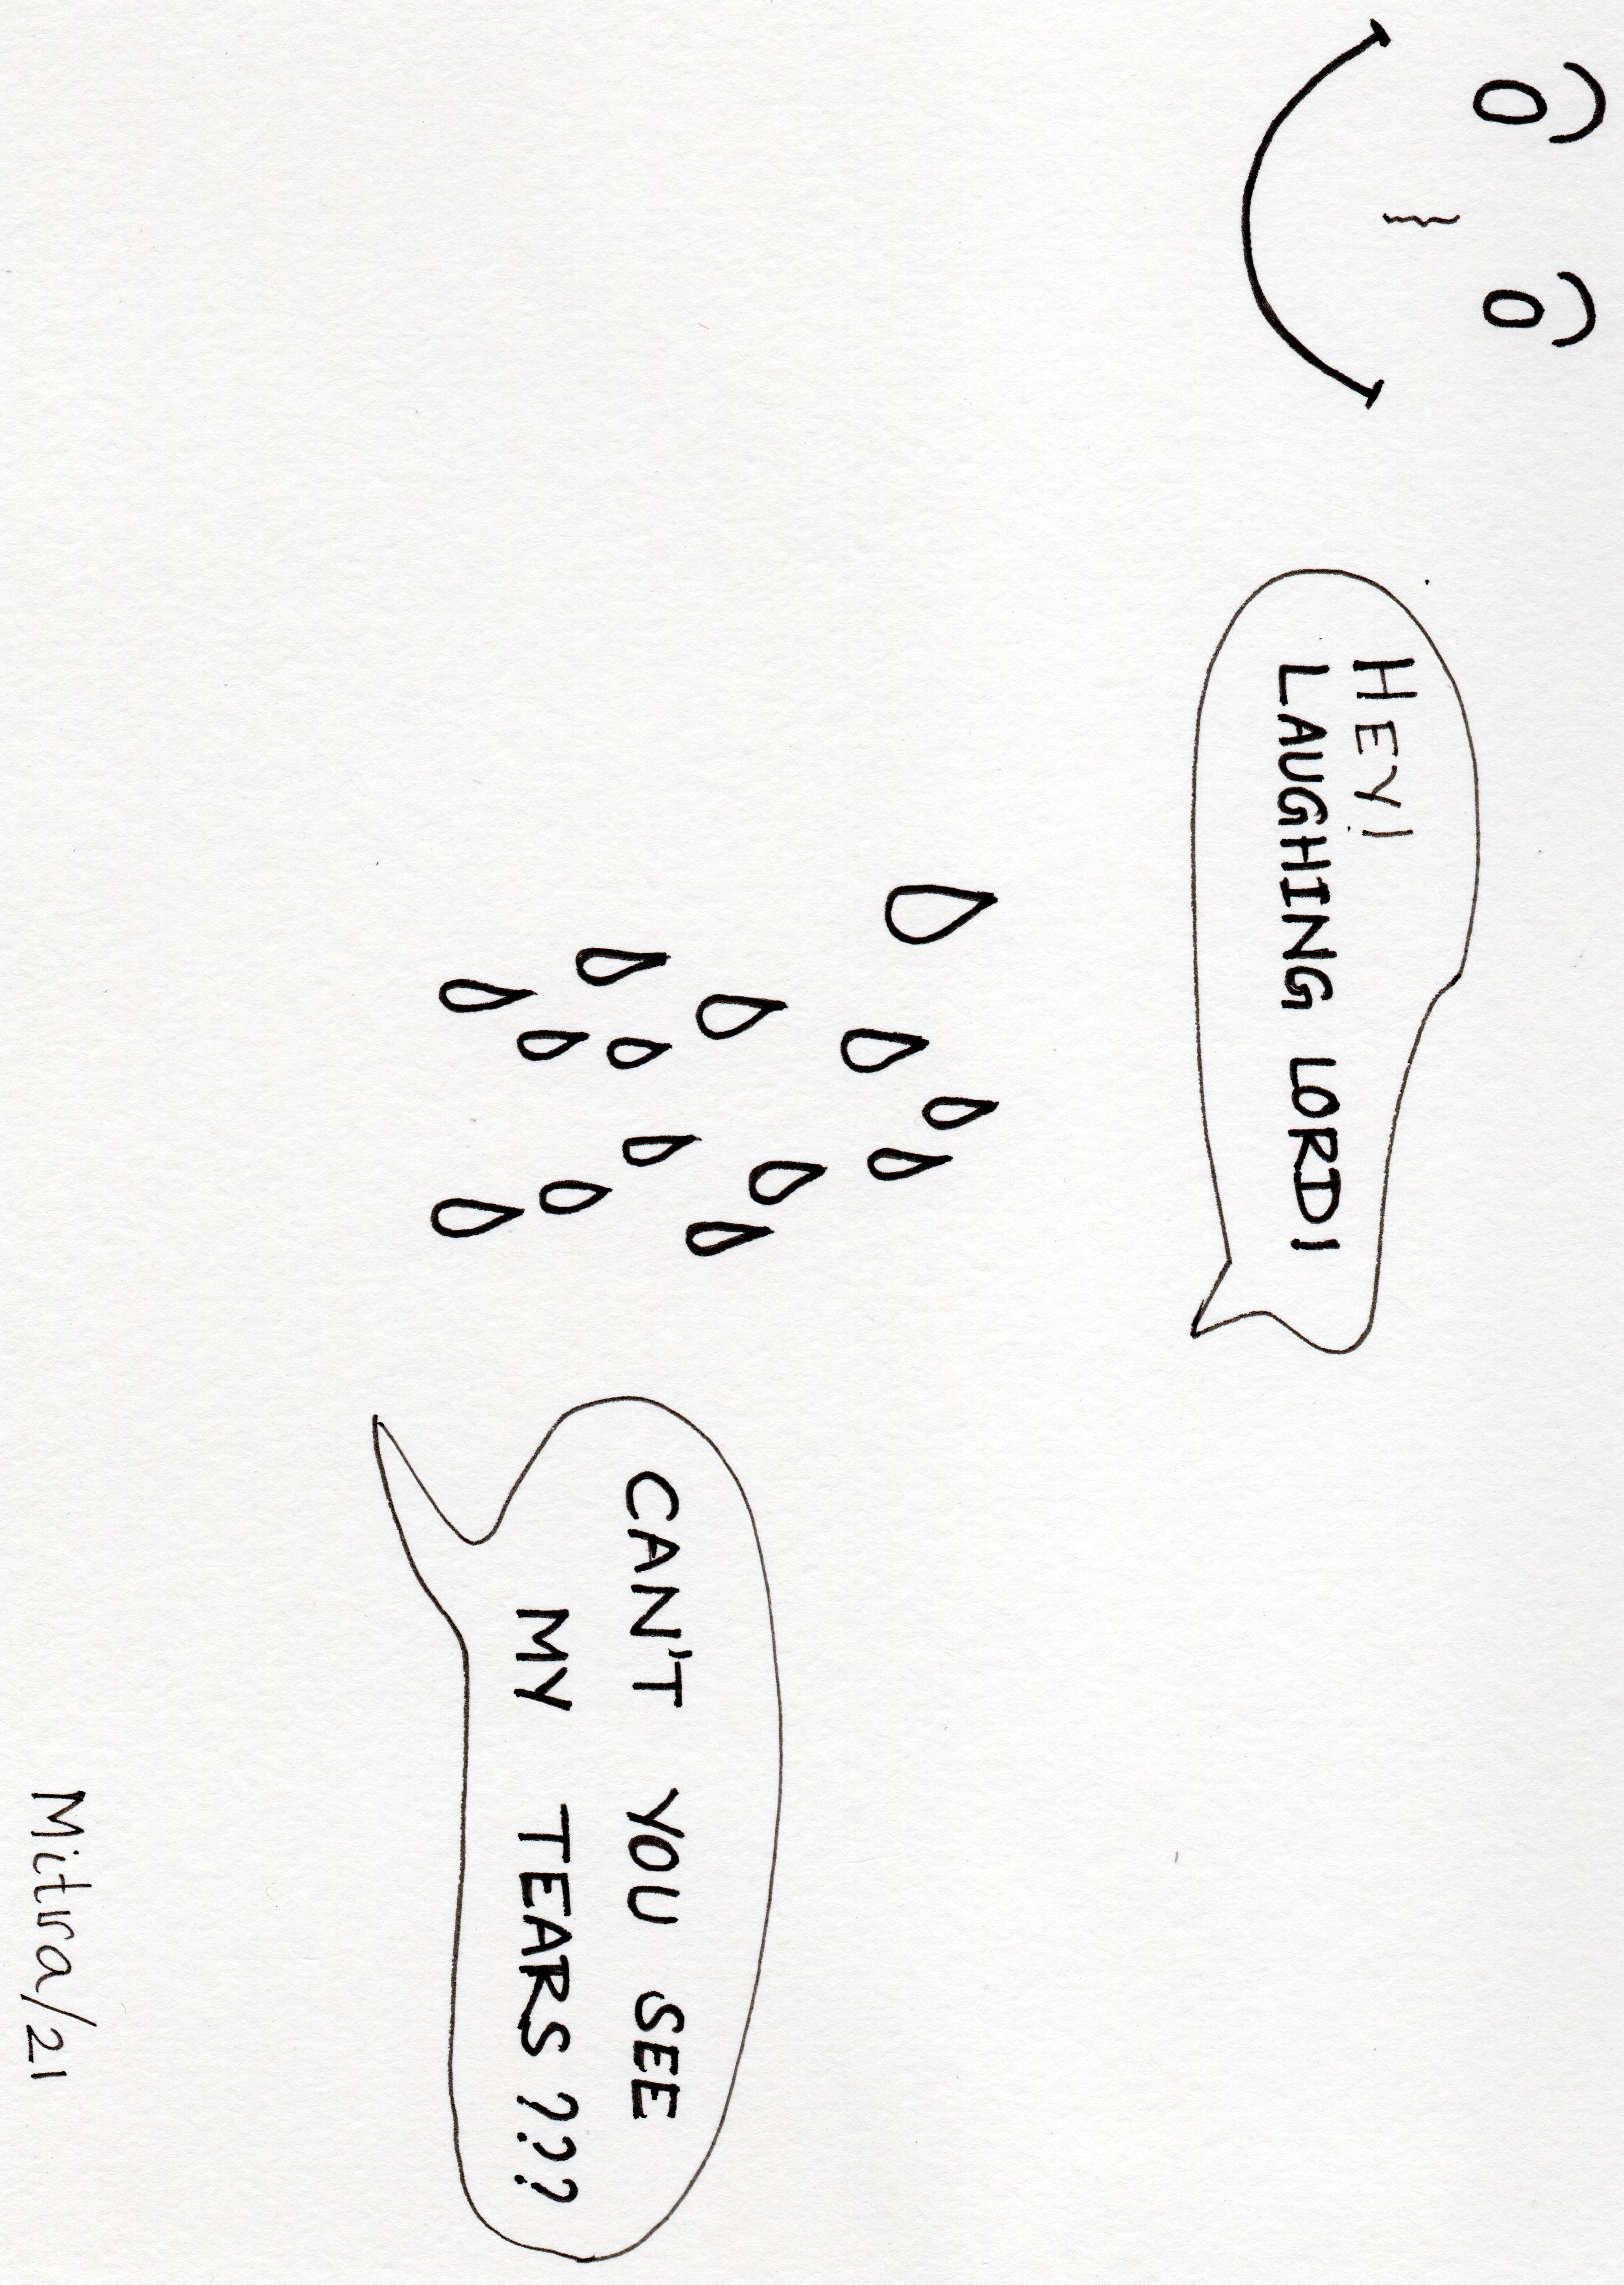 HEY!
LAUGHING LORD!
CAN'T YOU SEE
MY TEARS???
Mitra/21